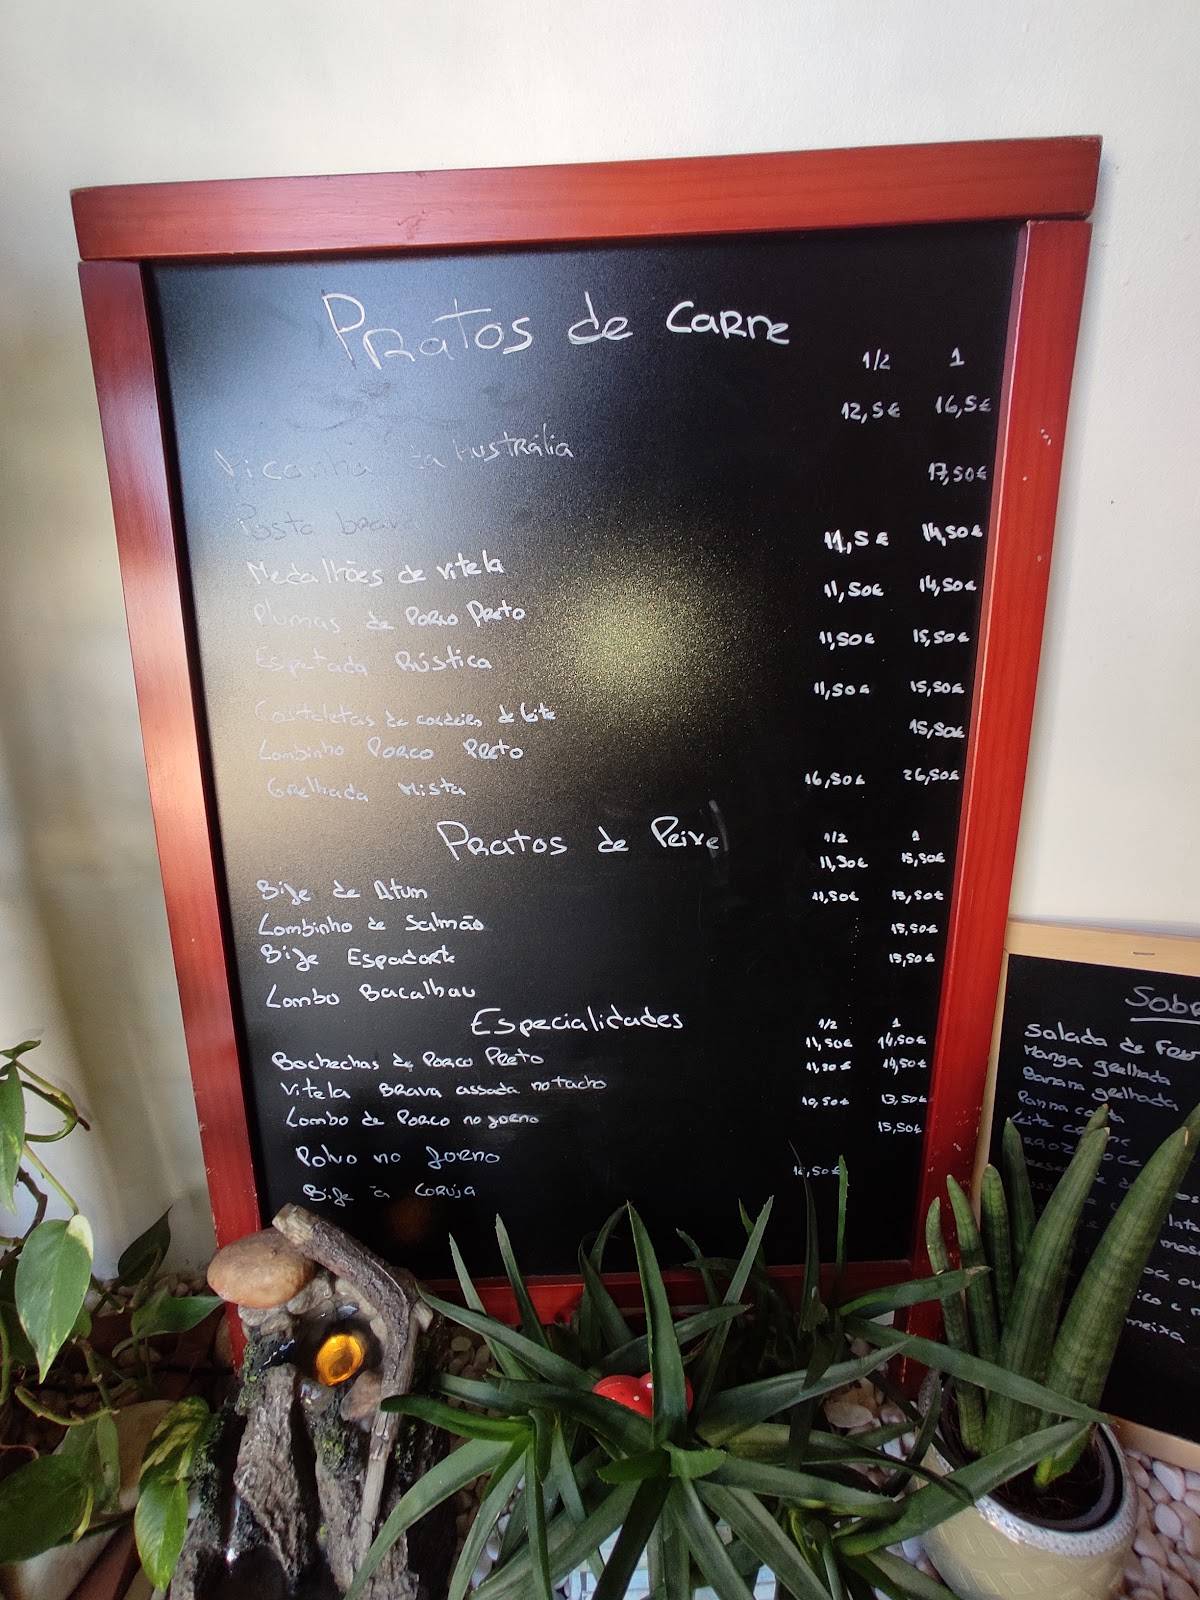 Pratos de Carne
1/2 1
Picanha da Austrália 12,5€ 16,5€
Posta brava 17,50€
Medalhões de vitela 11,5€ 14,50€
Plumas de Porco Preto 11,50€ 14,50€
Espetada Rústica 11,50€ 15,50€
Costeletas de cordeiro de leite 11,50€ 15,50€
Lombinho Porco Preto 15,50€
Grelhada Mista 16,50€ 26,50€
Pratos de Peixe 1/2 1
Bife de Atum 11,50€ 15,50€
Lombinho de Salmão 11,50€ 13,50€
Bife Espadarte 15,50€
Lombo Bacalhau 15,50€
Especialidades 1/2 1
Bochechas de Porco Preto 11,50€ 14,50€
Vitela Brava assada no tacho 11,50€ 14,50€
Lombo de Porco no forno 10,50€ 13,50€
Polvo no forno 15,50€
Bife à Coruja ,50€
Salada de
Manga grelhada
Banana grelhada
Panna